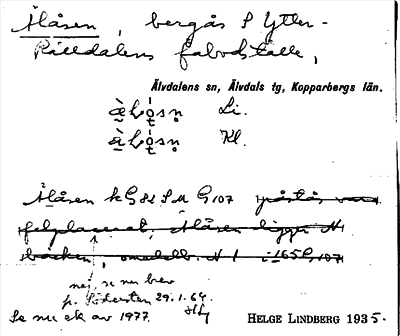 Ålåsen, bergås S Ytter-
Rälldalens fäbodställe,
Älvdalens sn, Älvdals tg, Kopparbergs län.
Li.
Kl.
Ålåsen kG82 S M G107 påstås vara
felplacerat, Ålåsen ligger N
bäcken, omedelb. N 1 i 165G,107
nej, se nu brev
fr. Södersten 29.1.64.
Se nu ek av 1977.
HELGE LINDBERG 1935.